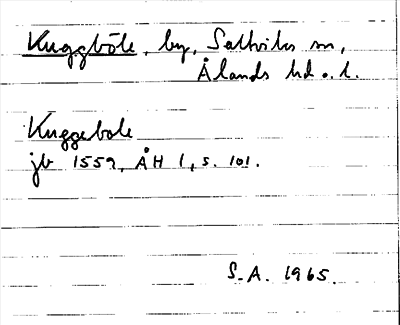 Kuggböle, by, Saltviks sn,
Ålands hd o. l.
Kuggebole
jb 1559, ÅH 1, s. 101.
S.A. 1965.